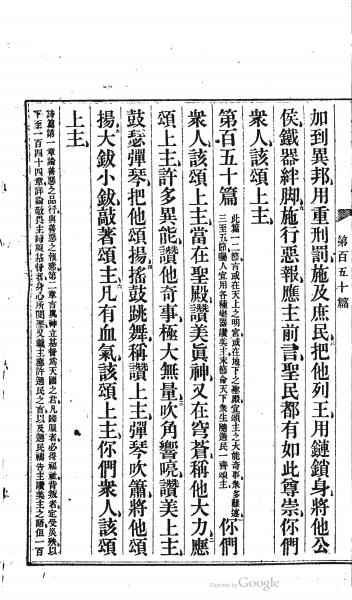 第百五十篇
加到異邦用重刑罰施及庶民把他列王用鏈鎖身將他公
侯鐵器絆脚施行惡報應主前言聖民都有如此尊崇你們
衆人該頌上主
第百五十篇 此篇一二節言或在天上之明宮或在地下之聖殿宜頌主之大能奇事衆多難述
三至五節勸人宜用各種樂器讚美主末節命天下衆生隨選民一齊頌主 你們
衆人該頌上主當在聖殿讚美眞神又在穹蒼稱他大力應
頌上主許多異能讚他奇事極大無量吹角響喨讚美上主
鼓瑟彈琴把他頌揚搖鼓跳舞稱讚上主彈琴吹簫將他頌
揚大鈸小鈸敲著頌主凡有血氣該頌上主你們衆人該頌
上主
詩篇第一章論善惡之品行與善惡之報應第二章言神立基督爲天國之君凡歸服者必得福祉背叛者定受災殃以
下至一百四十四章詳論敬畏主歸服基督者身心所閱歷又載主嘉許選民之言以及選民禱告主讚美主之語但一百
Digitized by Google